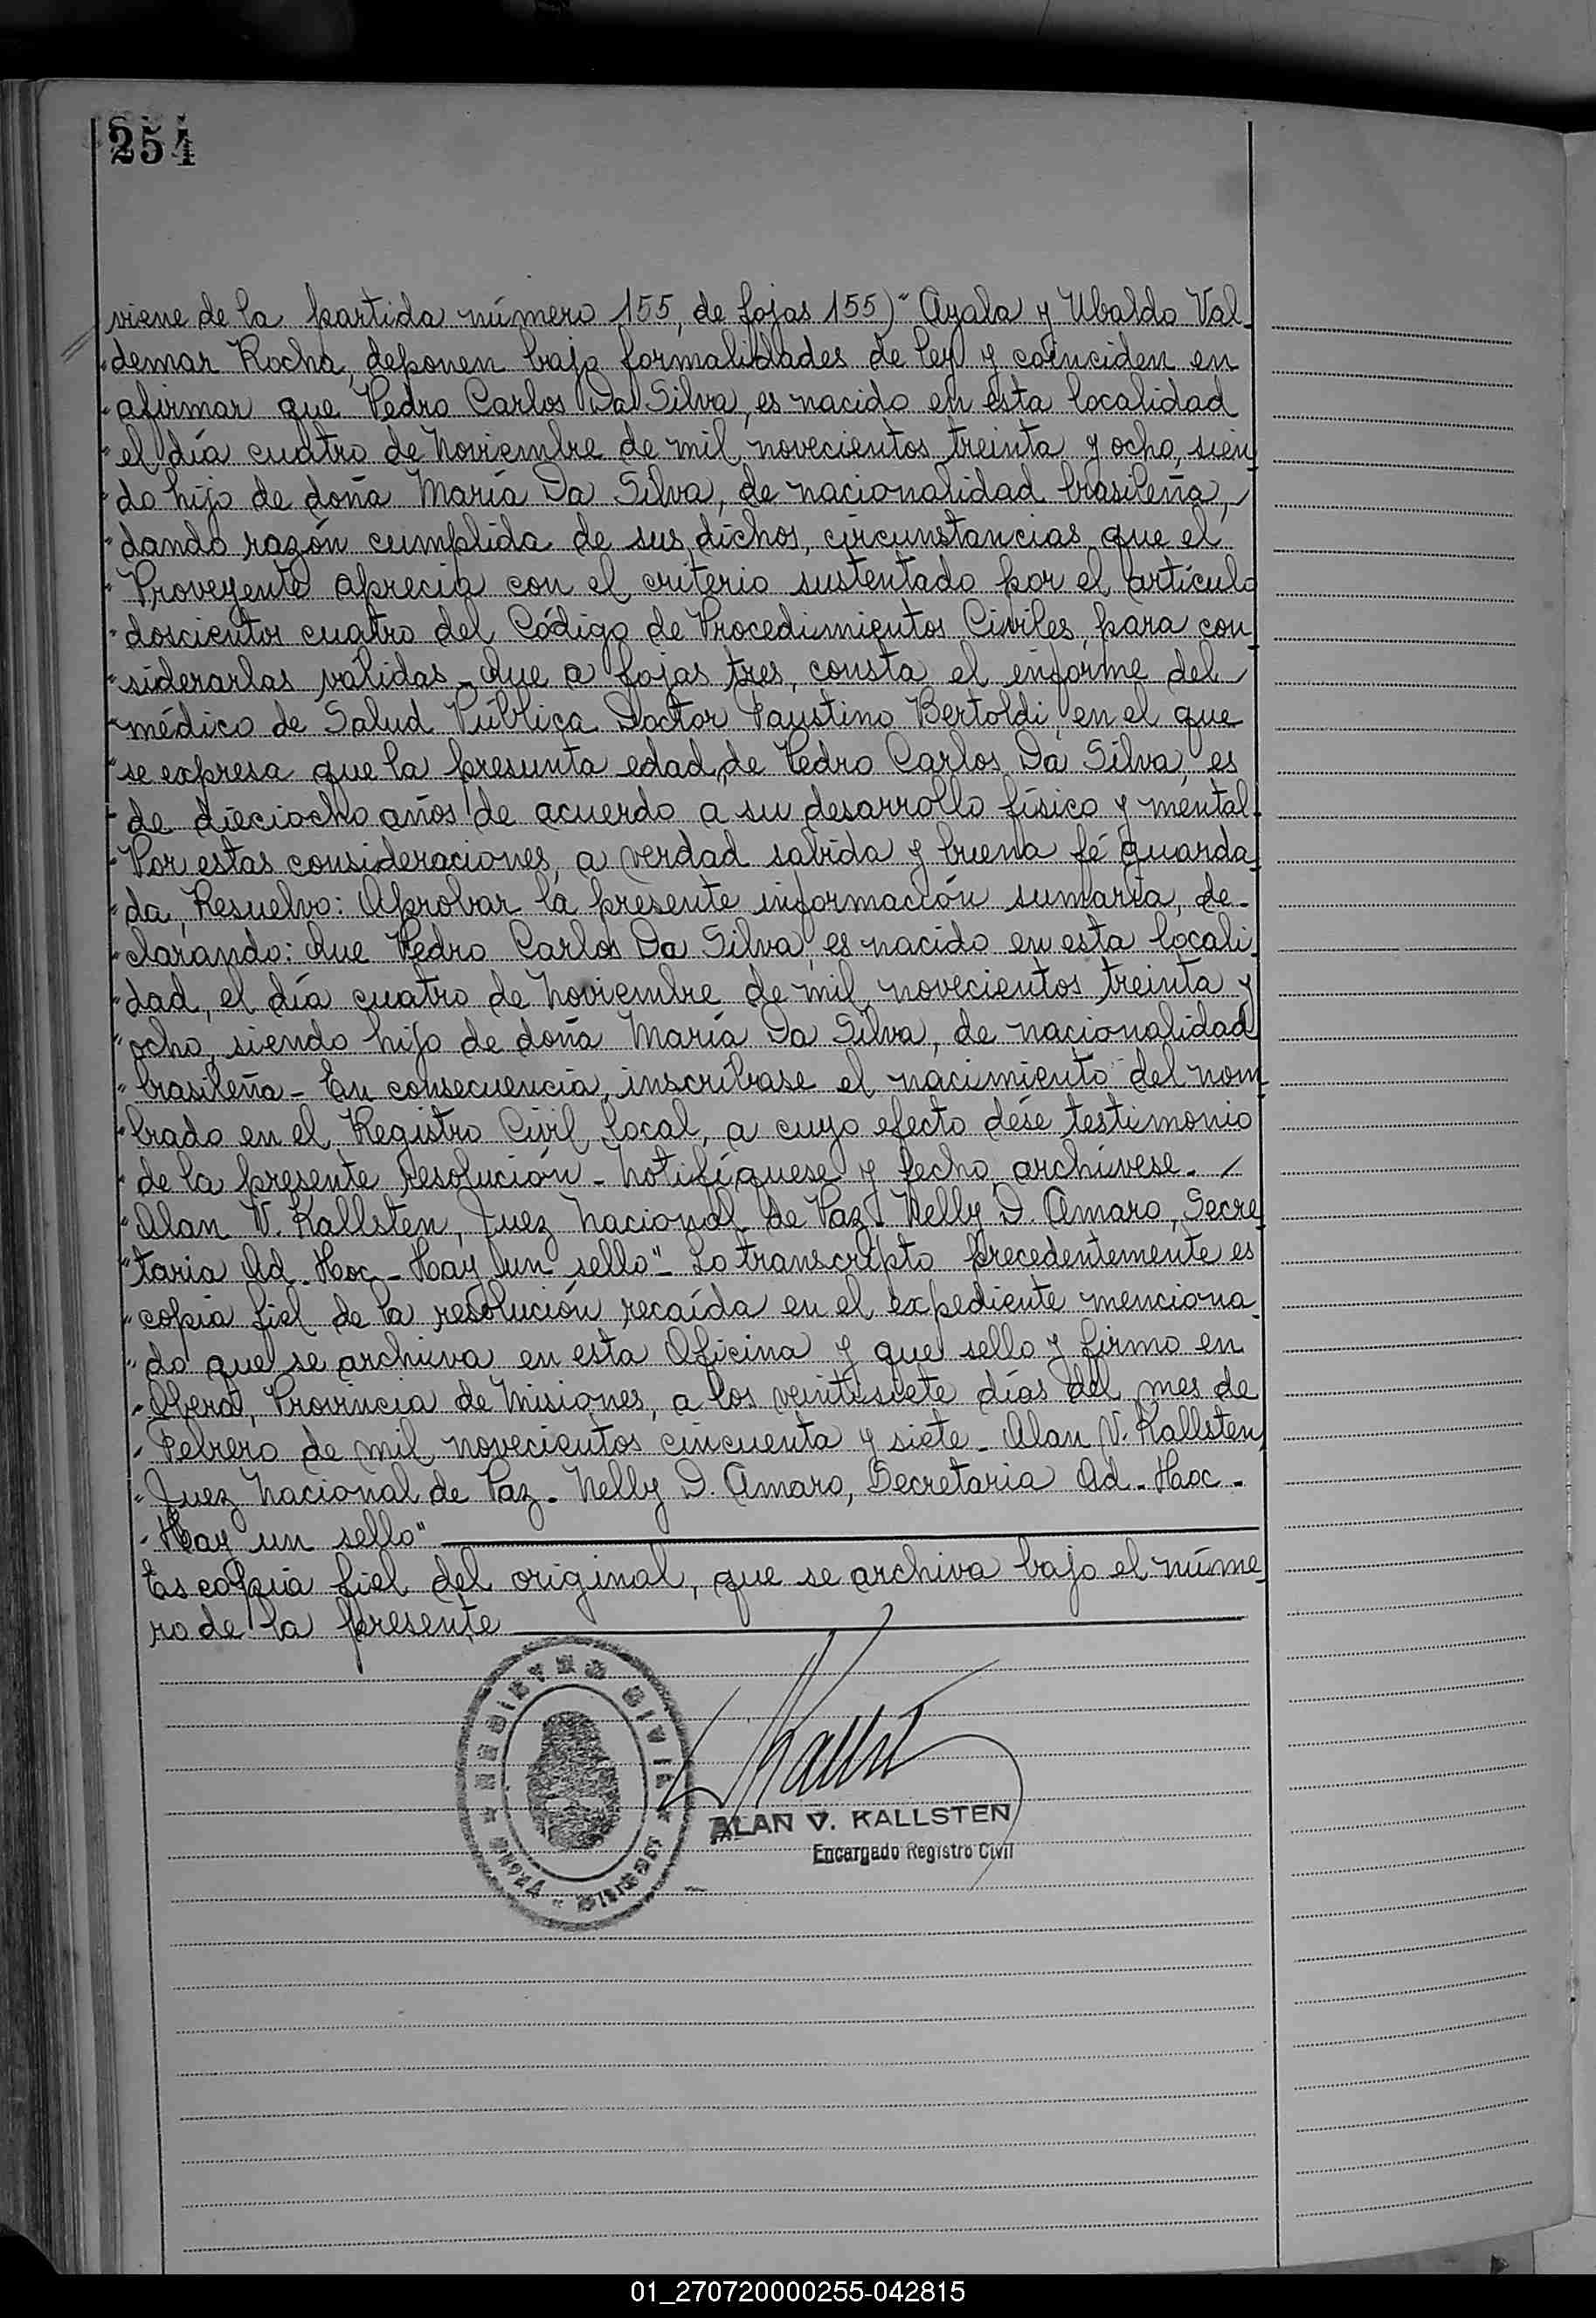 254
viene de la partida número 155, de fojas 155)" Ayala y Ubaldo Val-
"demar Rocha, deponen bajo formalidades de ley y coinciden en
"afirmar que Pedro Carlos Da Silva, es nacido en esta localidad
"el día cuatro de Noviembre de mil novecientos treinta y ocho, sien-
"do hijo de doña María Da Silva, de nacionalidad brasileña,
"dando razón cumplida de sus dichos, circunstancias que el
"Proveyente aprecia con el criterio sustentado por el artículo
"doscientos cuatro del Código de Procedimientos Civiles, para con-
"siderarlas válidas - Que a fojas tres, consta el informe del
"médico de Salud Pública Doctor Faustino Bertoldi, en el que
"se expresa que la presunta edad de Pedro Carlos Da Silva, es
"de dieciocho años de acuerdo a su desarrollo físico y mental.
"Por estas consideraciones, a verdad sabida y buena fé guarda-
"da, Resuelvo: Aprobar la presente información sumaria, de-
"clarando: Que Pedro Carlos Da Silva, es nacido en esta locali-
"dad, el día cuatro de Noviembre de mil novecientos treinta y
"ocho, siendo hijo de doña María Da Silva, de nacionalidad
"brasileña - En consecuencia, inscríbase el nacimiento del nom-
"brado en el Registro Civil local, a cuyo efecto dése testimonio
"de la presente resolución - Notifíquese y fecho, archívese. /
"Alan V. Kallsten, Juez Nacional de Paz - Nelly D. Amaro, Secre-
"taria Ad-Hoc - Hay un sello" - Lo transcripto precedentemente es
"copia fiel de la resolución recaída en el expediente menciona-
"do que se archiva en esta Oficina y que sello y firmo en
"Oberá, Provincia de Misiones, a los veintisiete días del mes de
"Febrero de mil novecientos cincuenta y siete - Alan V. Kallsten,
"Juez Nacional de Paz - Nelly D. Amaro, Secretaria Ad-Hoc -
"Hay un sello"
Es copia fiel del original, que se archiva bajo el núme-
ro de la presente
REGISTRO CIVIL
OBERA - MISIONES
ALAN V. KALLSTEN
Encargado Registro Civil
01_270720000255-042815